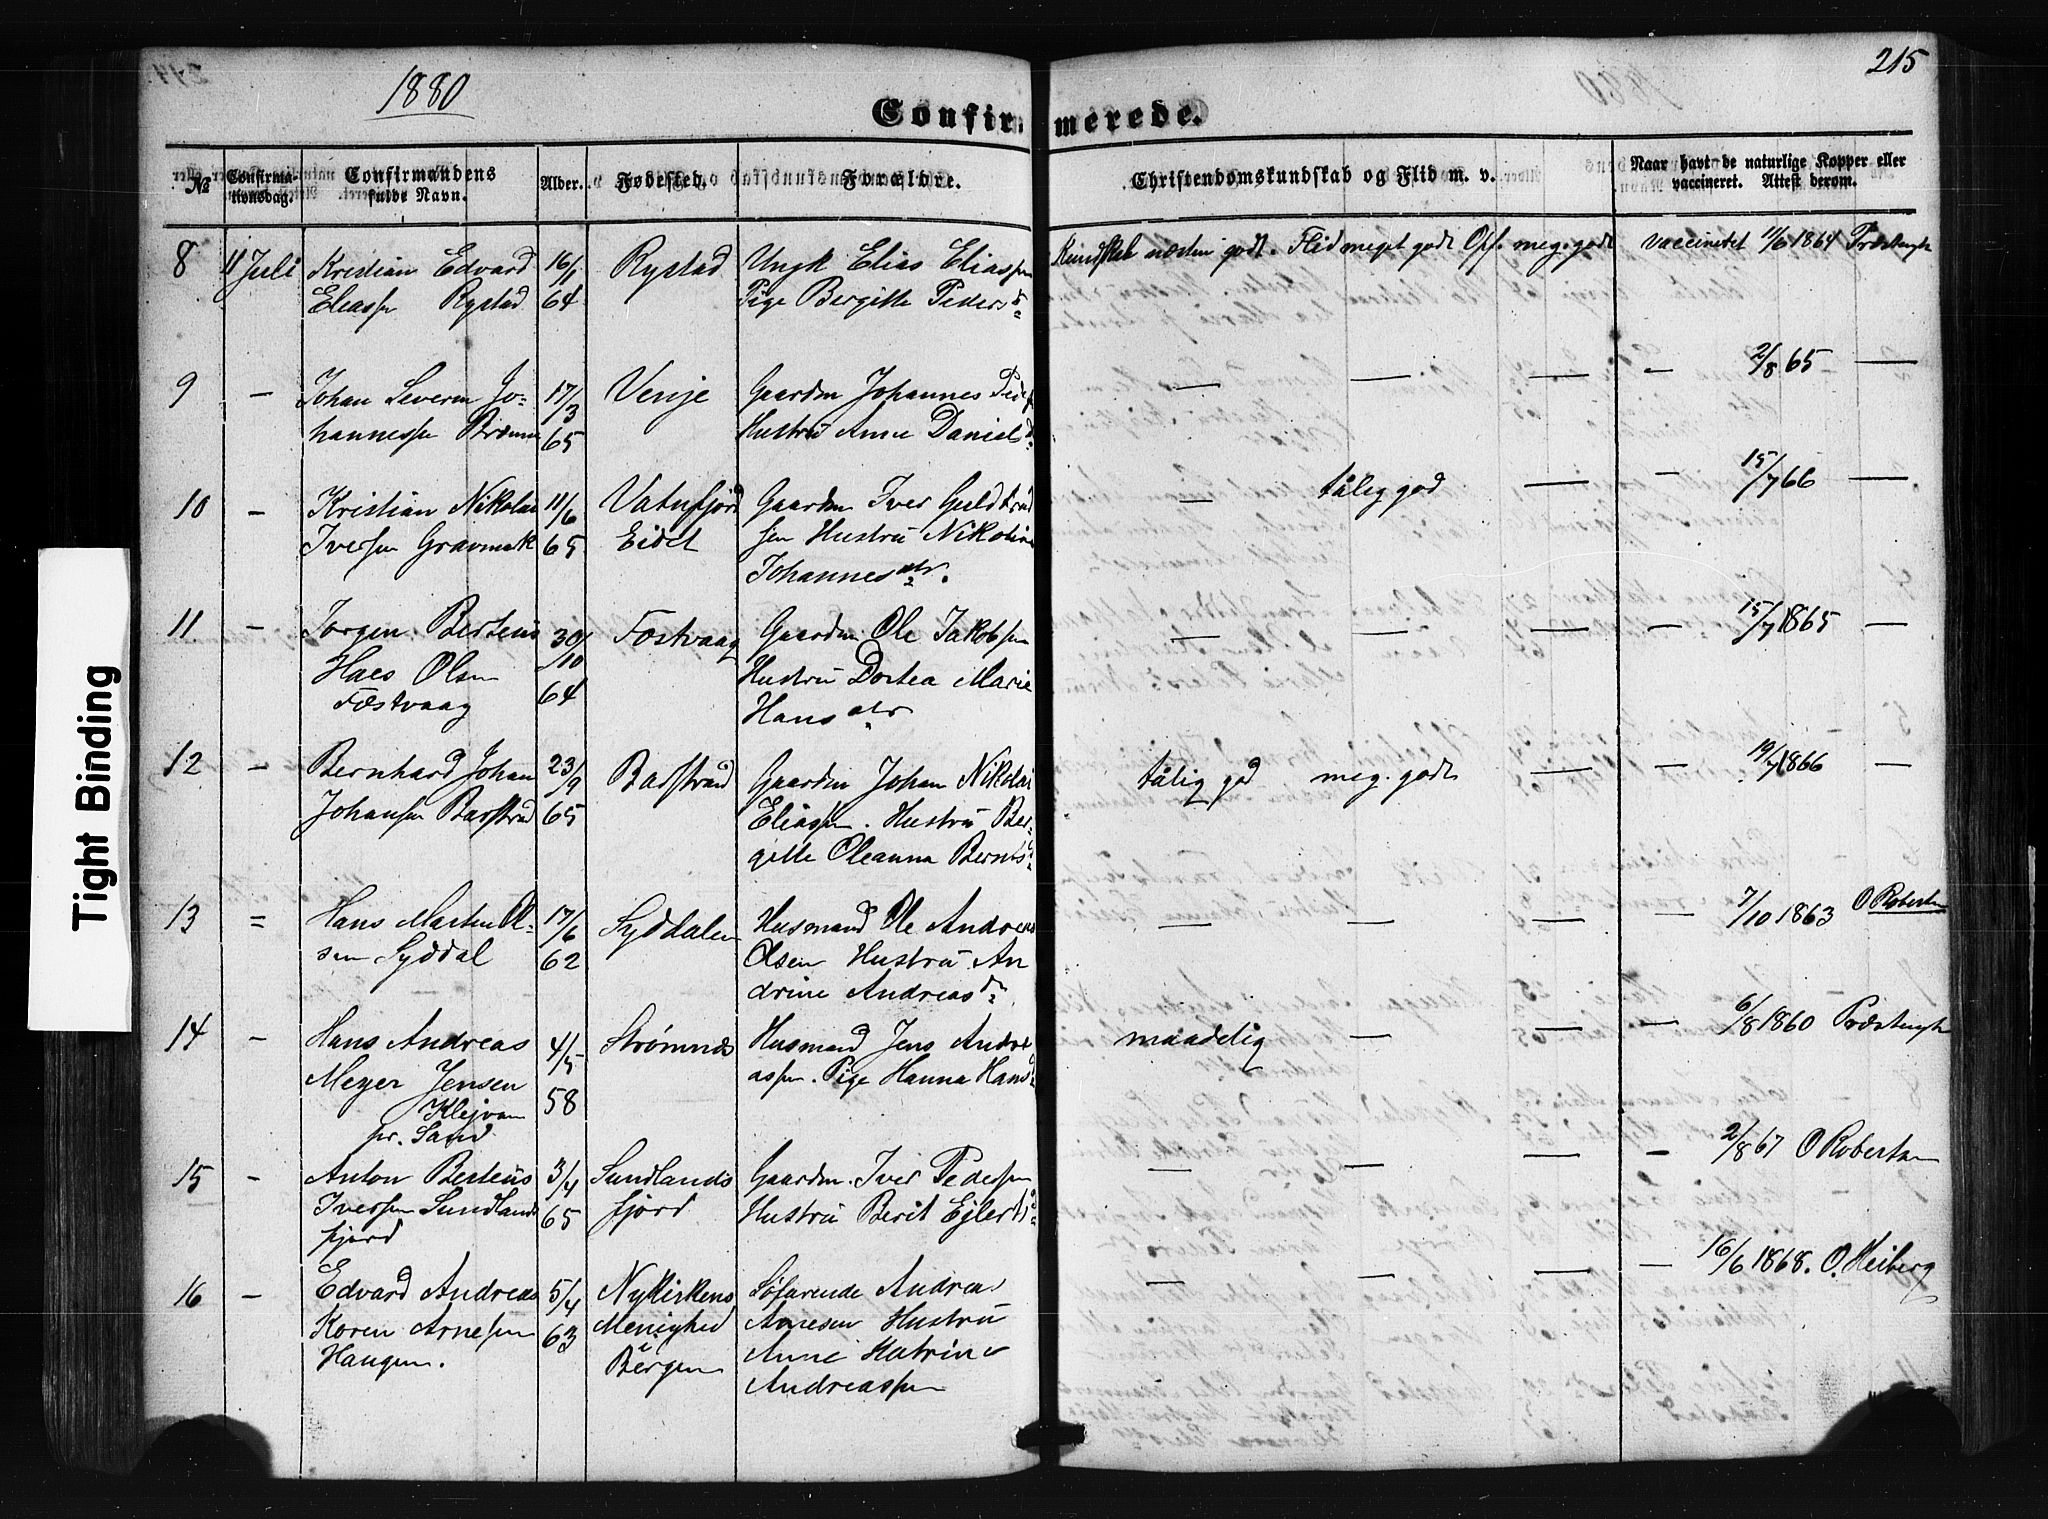 1880
215
Confirmerede.
№ Confirmationsdag. Confirmandens fulde Navn. Alder. Fødested. Forældre. Christendomskundskab og Flid m. v. Naar havt de naturlige Kopper eller vaccineret. Attest derom.
8 11 Juli Kristian Edvard 16/1 Rystad Ungk Elias Eliassen Kundskab næsten godt. Flid meget godt Opf. meg. godt vaccineret 11/6 1864
Eliassen Rystad 64 Pige Bergitte Peders d:
9 — Johan Severin Jo- 17/3 Venje Gaardm Johannes Peders — — — — 2/8 65 —
hannessen 65 Hustru Anne Daniels d:
10 — Kristian Nikolai 11/6 Vatnfjord Gaardm Iver Guldbrand — tålig god — — 15/7 66 —
Iversen Gravmark 65 Eidet sen Hustru Nikoline
Johannes dtr.
11 — Jørgen Berteus 30/10 Føstvaag Gaardm. Ole Jakobsen — — — — 15/7 1865 —
Haes Olsen 64 Hustru Dortea Marie
Føstvaag Hans dtr
12 — Bernhard Johan 23/9 Barstrand Gaardm Johan Nikolai tålig god meg. godt — — 19/7 1866 —
Johansen Barstrand 65 Eliassen. Hustru Ber-
gitte Oleanna Bernts d:
13 = Hans Martin Ol- 17/6 Syddalen Husmand Ole Andreas — — — — 7/10 1863 O Robertsen
sen Syddal 62 Olsen Hustru An
drine Andreas d:
14 — Hans Andreas 4/5 Strømnæs Husmand Jens Andre maadelig — — — 6/8 1860
Meyer Jensen 58 assen. Pige Hanna Hans d:
Klejvan
pr. Sand
15 — Anton Berteus 3/4 Sundlands Gaardm. Iver Pedersen — — — — 2/8 67 O Robertsen
Iversen Sundlands 65 fjord Hustru Berit Ejlerts d:
fjord
16 — Edvard Andreas 5/4 Nykirkens Søfarende Andreas — — — — 16/6 1868. O. Heiberg
Koren Arnesen 63 Menighed Arnesen Hustru
Haugen. i Bergen Anne Katrine
Andreassen
Tight Binding